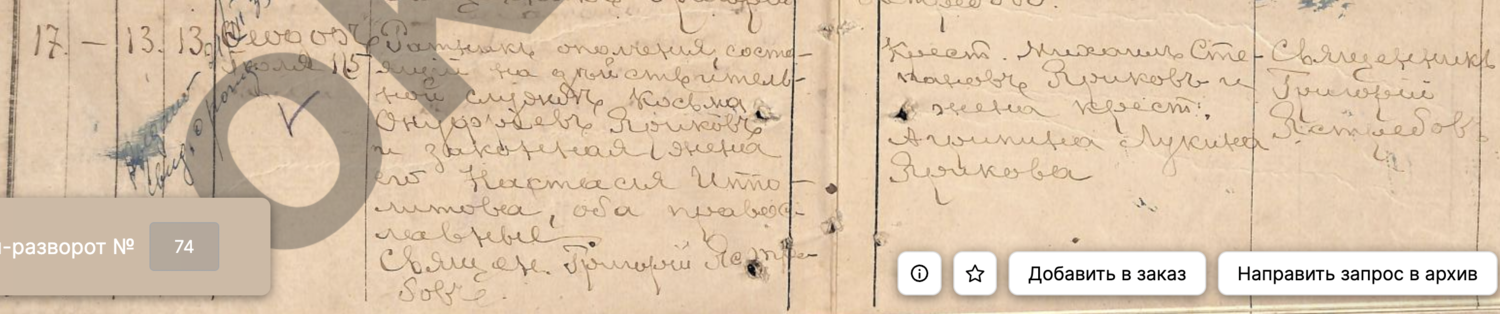 17. — 13. 13. Ѳеодоръ
Іюля 15
Ратникъ ополченія, состо-
ящій на дѣйствитель-
ной службѣ Косьма
Онуфріевъ Яриковъ
и законная жена
его Настасія Иппо-
литовна, оба право-
славные
Священ. Григорій Ястре-
бовъ.
Крест. Михаилъ Сте-
пановъ Яриковъ и
жена крест.
Агрипина Лукина
Ярикова
Священникъ
Григорій
Ястребовъ
ОК
-разворот № 74
Добавить в заказ
Направить запрос в архив